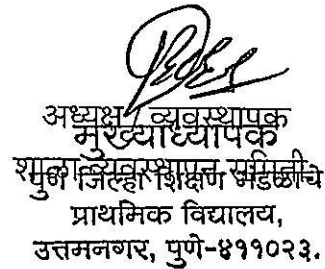 अध्यक्ष / व्यवस्थापक
मुख्याध्यापक
शाळा व्यवस्थापन समिती
पुणे जिल्हा शिक्षण मंडळाचे
प्राथमिक विद्यालय,
उत्तमनगर, पुणे-४११०२३.